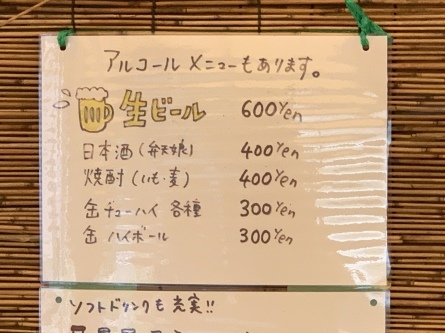 アルコールメニューもあります。
生ビール 600Yen
日本酒(弁天娘) 400Yen
焼酎(いも・麦) 400Yen
缶チューハイ 各種 300Yen
缶ハイボール 300Yen
ソフトドリンクも充実!!